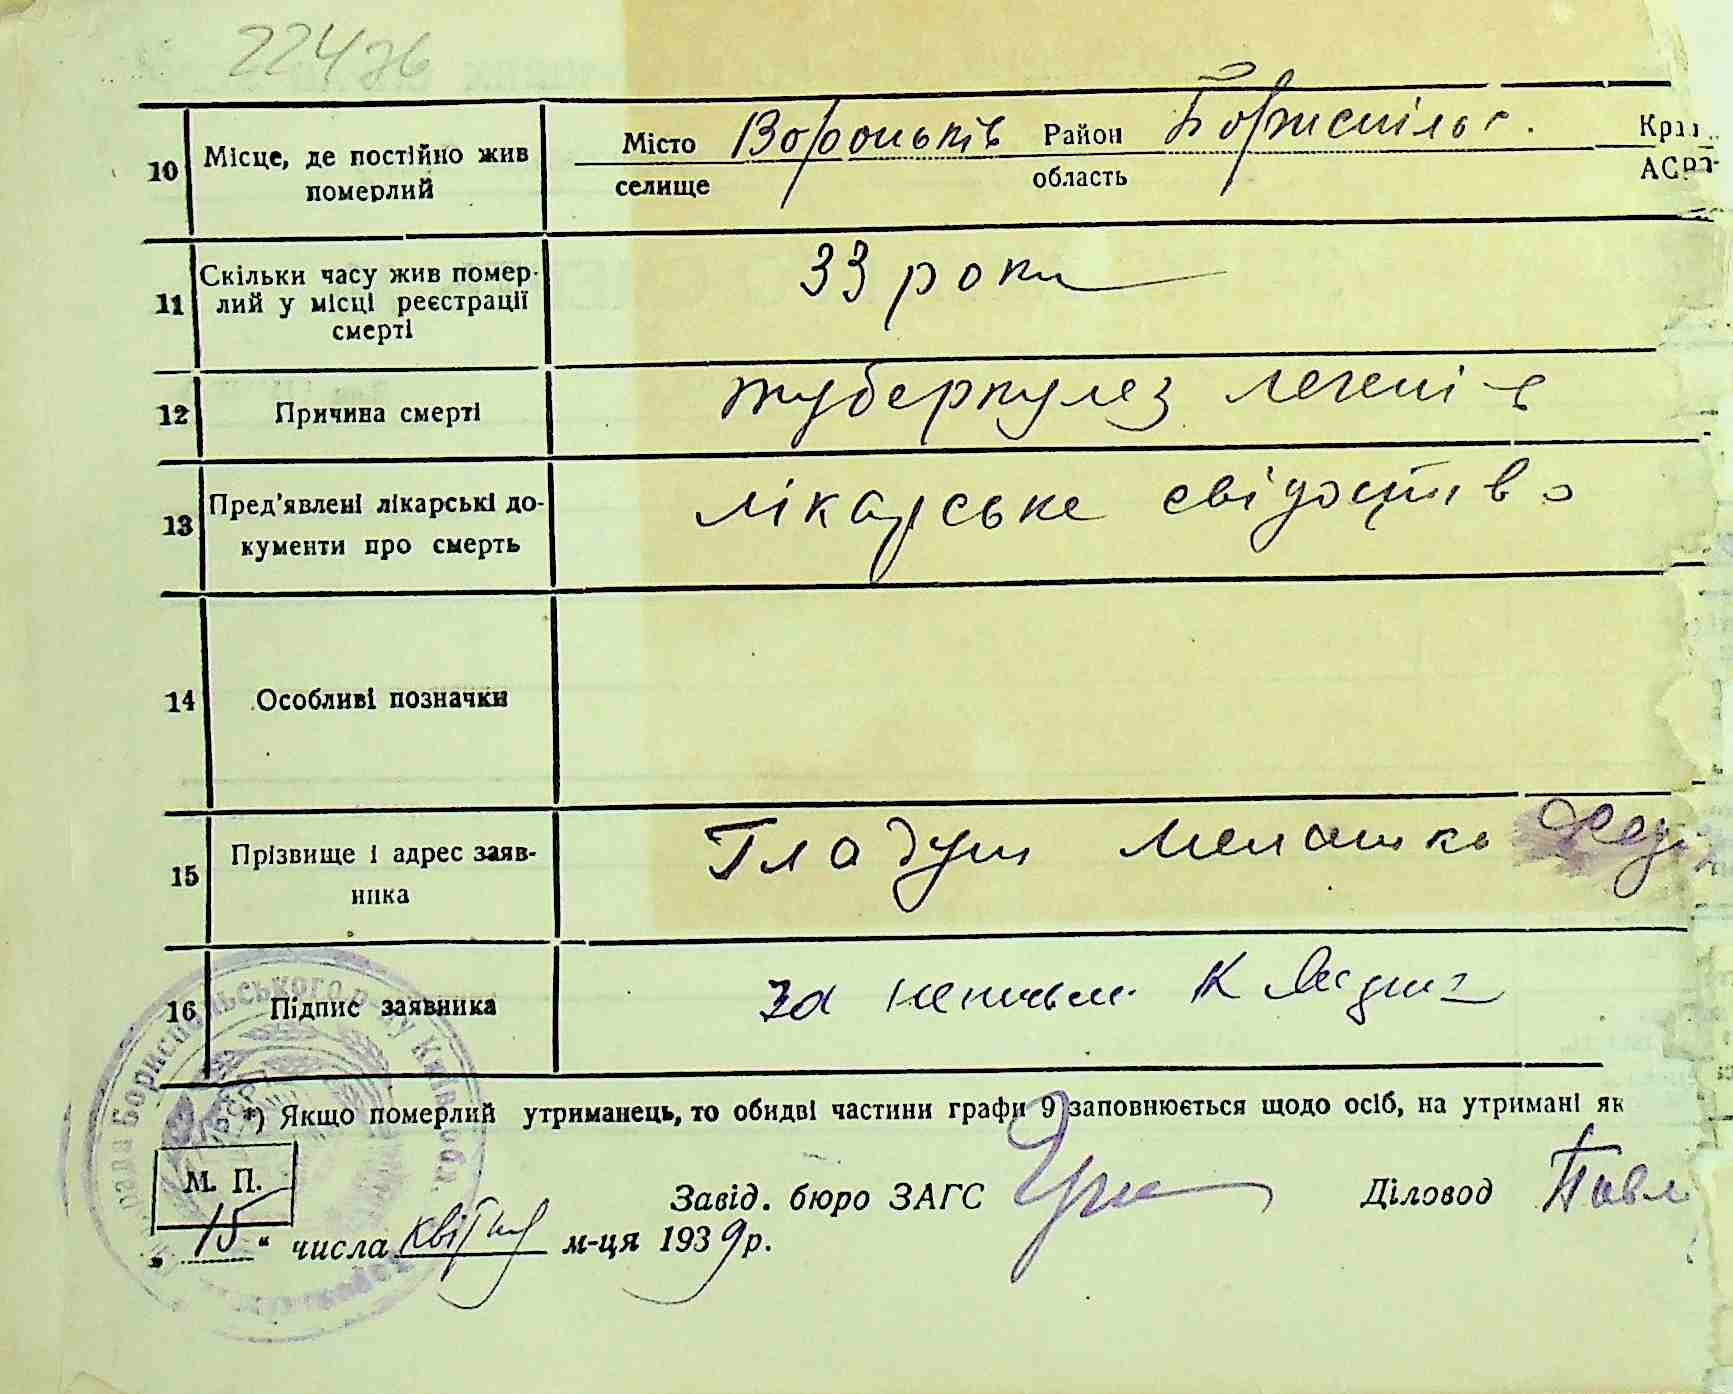 22476
10 Місце, де постійно жив померлий
Місто Вороньків Район Бориспільс. Кра
селище область АСР
11 Скільки часу жив помер-
лий у місці реєстрації
смерті
33 роки
12 Причина смерті туберкулез легенів
13 Пред'явлені лікарські до-
кументи про смерть
лікарське свідоцтво
14 Особливі позначки
15 Прізвище і адрес заяв-
ника
Гладуш Меланка Фед
16 Підпис заявника за неписьм.
*) Якщо померлий утриманець, то обидві частини графи 9 заповнюється щодо осіб, на утримані як
М. П.
Завід. бюро ЗАГС Діловод Павл
„ 15 “ числа квітня м-ця 1939р.
Бориспольського р-ну Київ. обл.